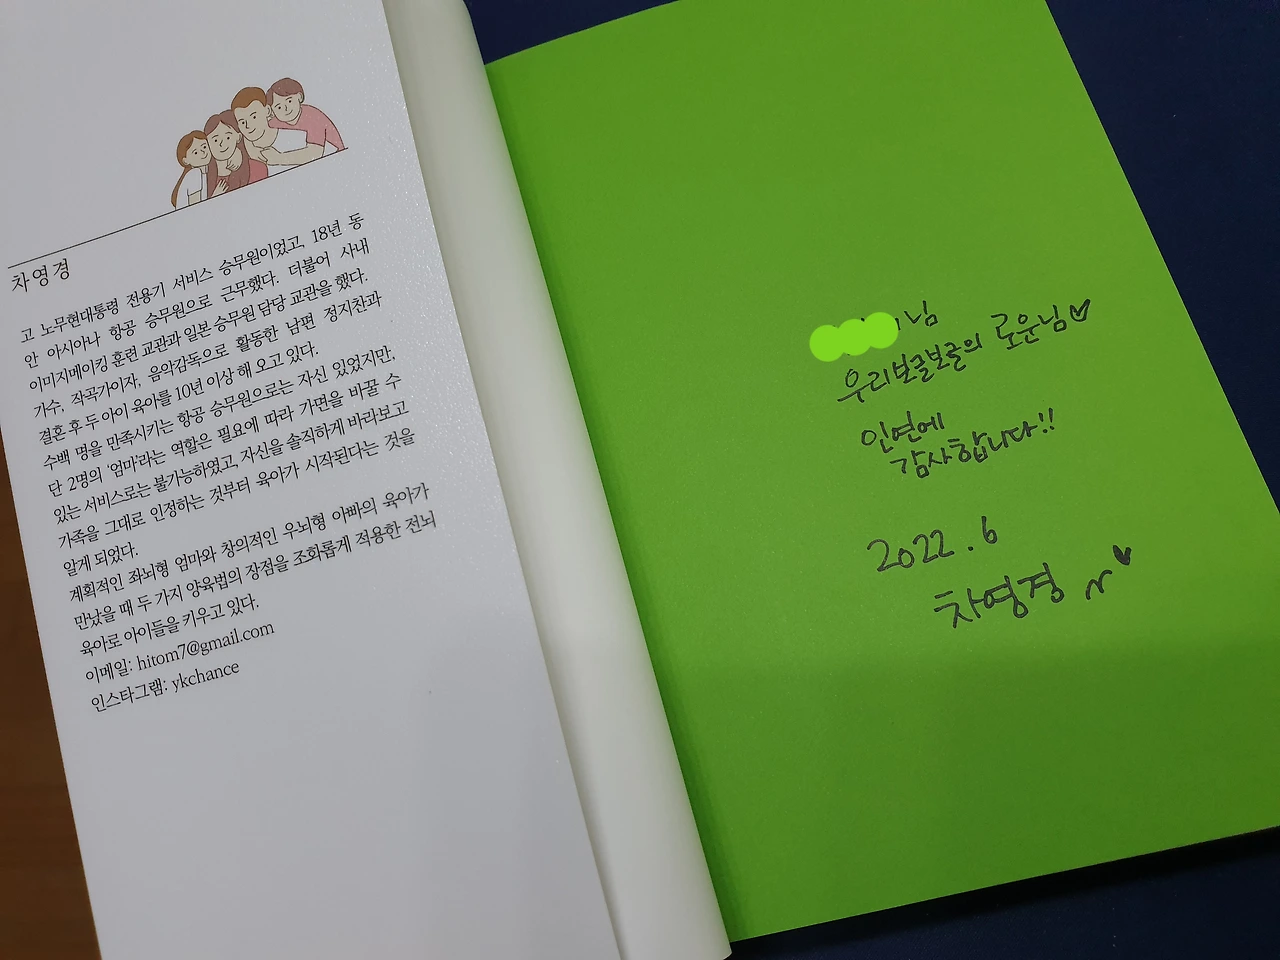 차영경
고 노무현대통령 전용기 서비스 승무원이었고, 18년 동
안 아시아나 항공 승무원으로 근무했다. 더불어 사내
이미지메이킹 훈련 교관과 일본 승무원 담당 교관을 했다.
가수, 작곡가이자, 음악감독으로 활동한 남편 정지찬과
결혼 후 두 아이 육아를 10년 이상 해 오고 있다.
수백 명을 만족시키는 항공 승무원으로는 자신 있었지만,
단 2명의 '엄마'라는 역할은 필요에 따라 가면을 바꿀 수
있는 서비스로는 불가능하였고, 자신을 솔직하게 바라보고
가족을 그대로 인정하는 것부터 육아가 시작된다는 것을
알게 되었다.
계획적인 좌뇌형 엄마와 창의적인 우뇌형 아빠의 육아가
만났을 때 두 가지 양육법의 장점을 조화롭게 적용한 전뇌
육아로 아이들을 키우고 있다.
이메일: hitom7@gmail.com
인스타그램: ykchance
님
우리보글보글의 로운님♡
인연에
감사합니다!!
2022.6
차영경